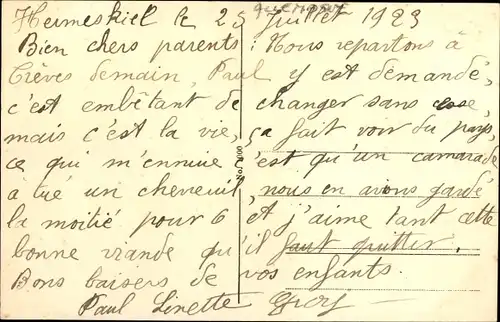 Hermeskiel le 25 Juillet 1923
Bien chers parents : Nous repartons à
Trèves demain, Paul y est demandé,
c'est embêtant de changer sans cesse,
mais c'est la vie, ça fait voir du pays,
ce qui m'ennuie c'est qu'un camarade
a tué un chevreuil, nous en avons gardé
la moitié pour 6 et j'aime tant cette
bonne viande qu'il faut quitter.
Bons baisers de vos enfants.
Paul Linette